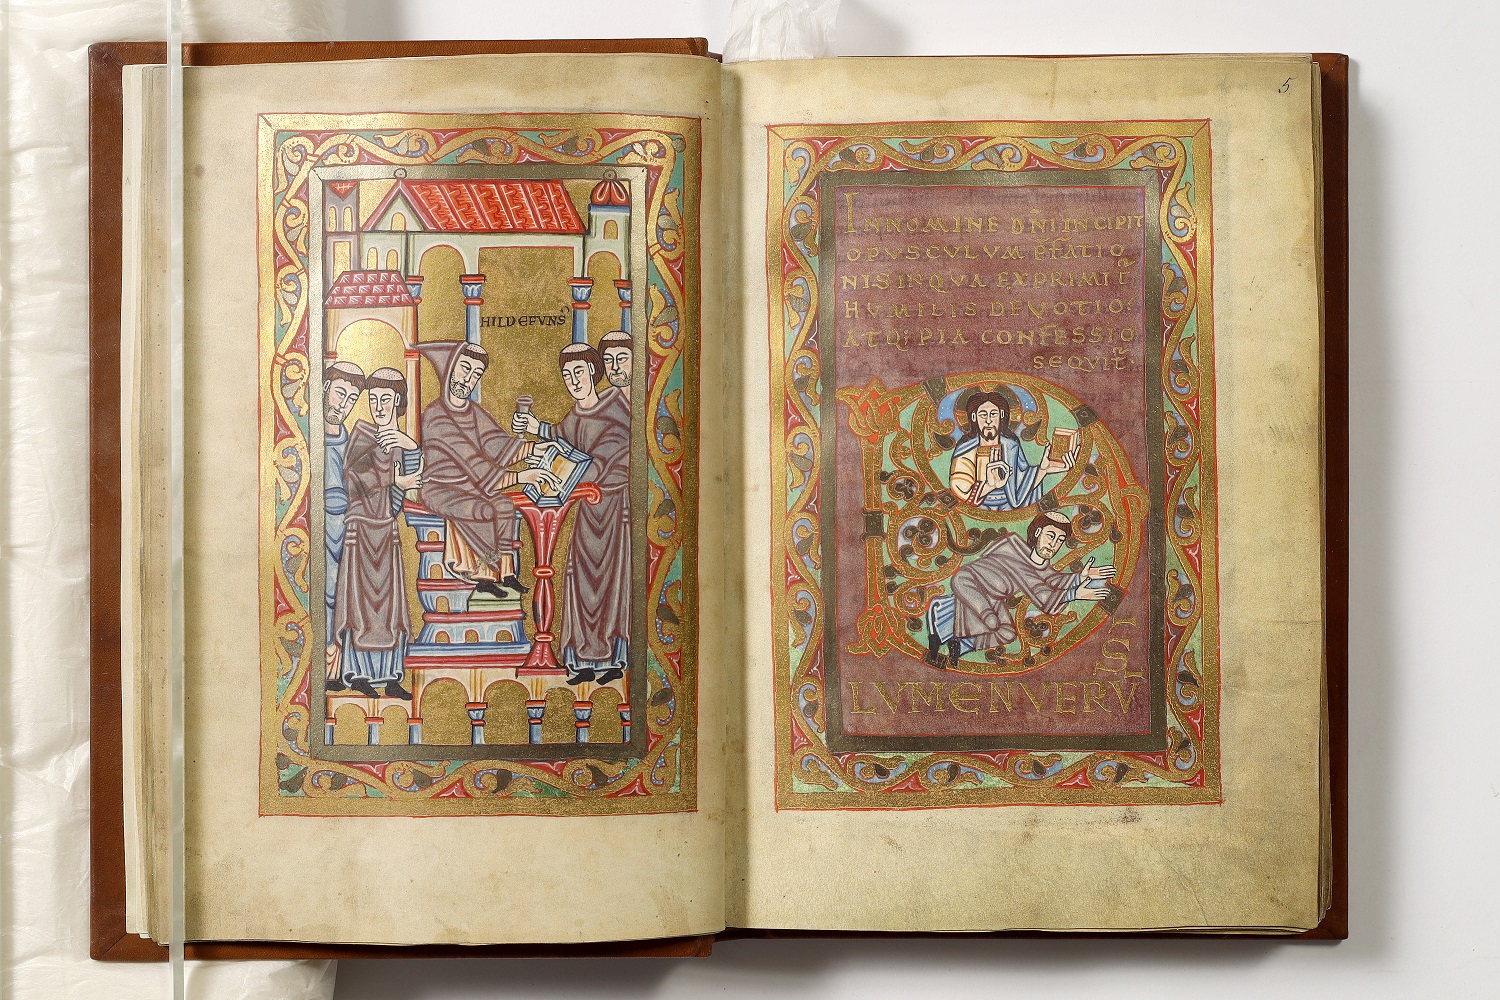 HILDEFVNS⁹
5
IN NOMINE DN̄I INCIPIT
OPVSCVLVM P̄FATIO
NIS IN QVA EXPRIMIT̄
HVMILIS DEVOTIO·
ATQ; PIA CONFESSIO
SEQVIT̄·
D
S
LVMEN VERV̄